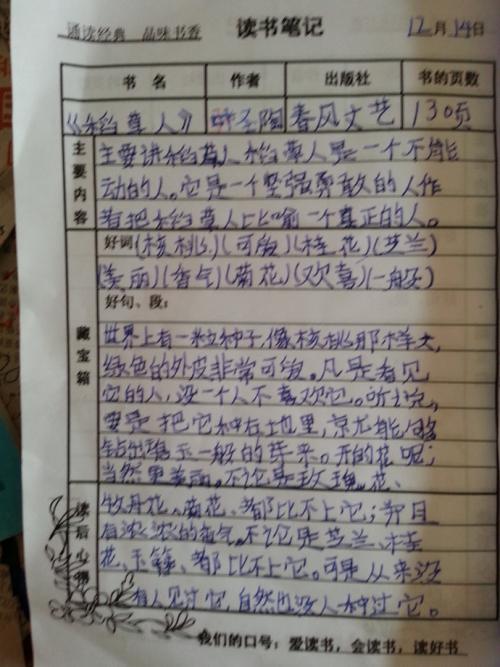 诵读经典 品味书香 读书笔记 12月14日
书名 作者 出版社 书的页数
《稻草人》 叶圣陶 春风文艺 130页
主要内容
主要讲稻草人稻草人是一个不能
动的人。它是一个坚强勇敢的人作
者把稻草人比喻一个真正的人。
藏宝箱
好词(核桃)(可爱)(桂花)(芝兰)
(美丽)(香气)(菊花)(欢喜)(一般)
好句、段:
世界上有一粒种子,像核桃那样大,
绿色的外皮非常可爱。凡是看见
它的人,没一个人不喜欢它。听说,
要是把它种在地里,就能够
钻出碧玉一般的芽来。开的花呢;
当然更美丽。不论是玫瑰花、
读后心得
牧丹花、菊花、都比不上它;并且
有浓浓的香气。不论是芝兰、桂
花、玉簪、都比不上它。可是从来没
有人见过它,自然也没人种过它。
我们的口号:爱读书,会读书,读好书